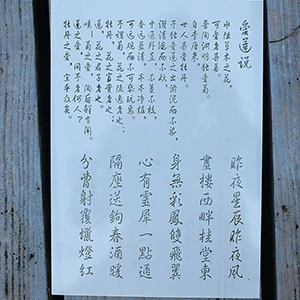 愛蓮说
水陸草木之花,
可愛者甚蕃。
晉陶渊明独愛菊。
自李唐来,
世人甚愛牡丹。
予独愛蓮之出淤泥而不染,
濯清涟而不妖,
中通外直,不蔓不枝,
香远益清,亭亭净植,
可远观而不可亵玩焉。
予谓菊,花之隐逸者也;
牡丹,花之富贵者也;
蓮,花之君子者也。
噫!菊之愛,陶后鲜有闻。
蓮之愛,同予者何人?
牡丹之愛,宜乎众矣。
昨夜星辰昨夜風
畫樓西畔桂堂東
身無彩鳳雙飛翼
心有靈犀一點通
隔座送鉤春酒暖
分曹射覆蠟燈紅